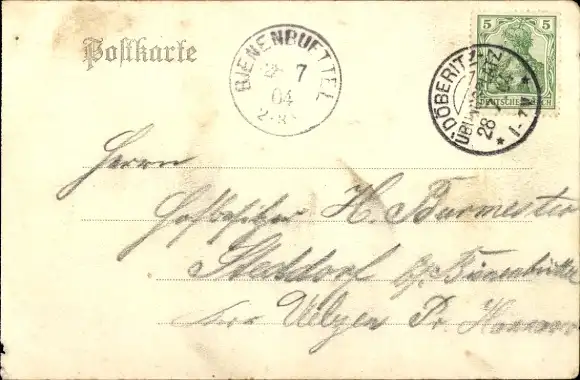 Postkarte
BIENENBUETTEL
7
04
2-3
5 5
DEUTSCHES REICH
DÖBERITZ
28 7
1-
Herrn
Hofbesitzer H. Burmester
Steddorf b/ Bienenbüttel
Kreis Uelzen Pr. Hannover